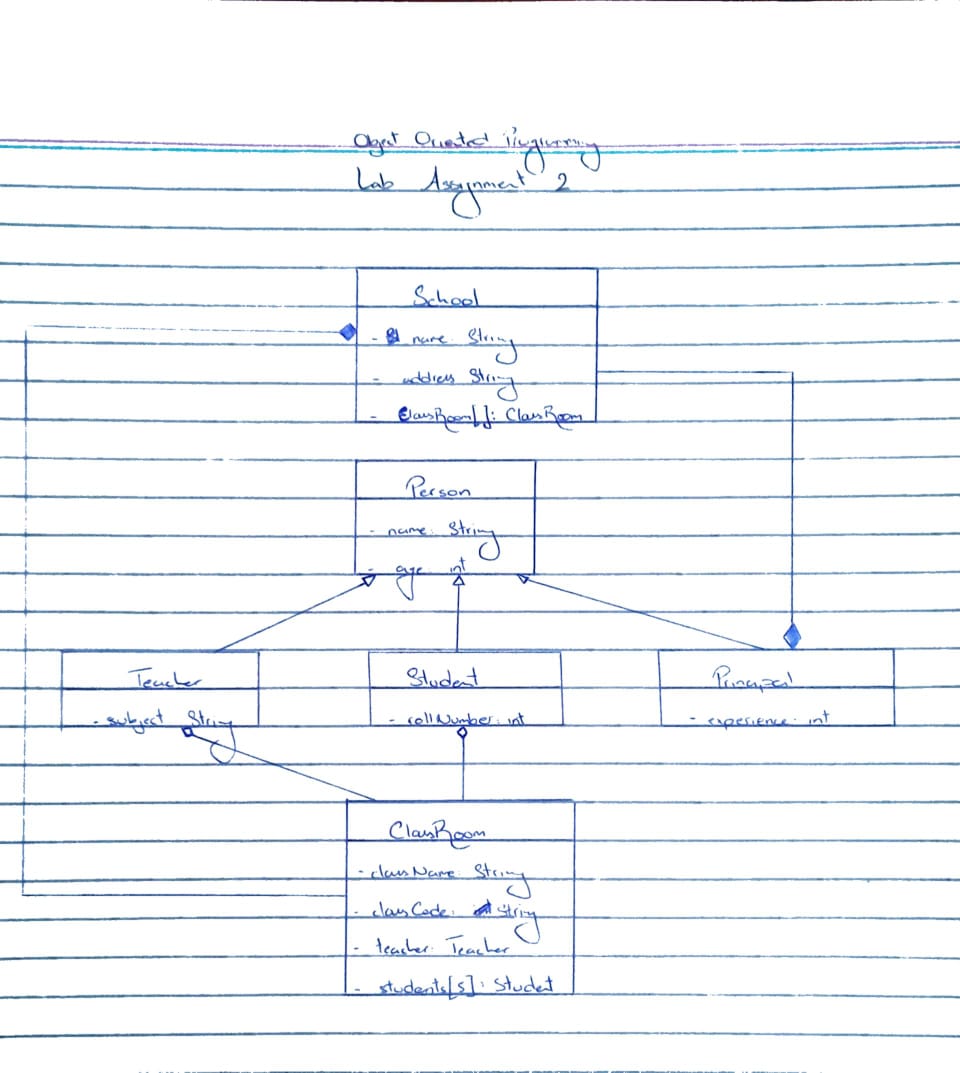 Object Oriented Programming
Lab Assignment 2
School
- name: String
- address String
- ClassRoom[]: ClassRoom
Person
- name: String
- age: int
Teacher
- subject String
Student
- rollNumber: int
Principal
- experience: int
ClassRoom
- className: String
- classCode: String
- teacher: Teacher
- students[5]: Studet